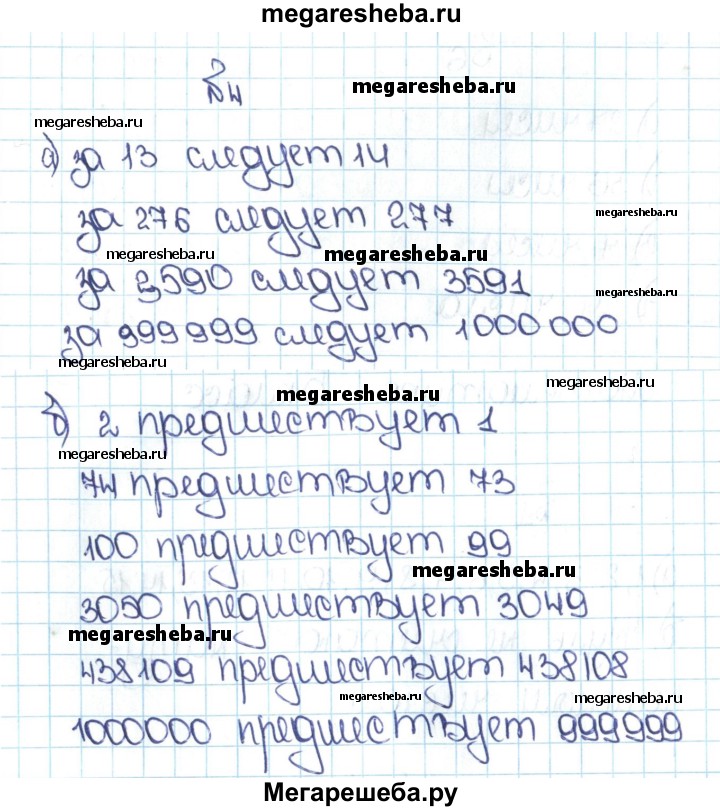 megaresheba.ru
№4
megaresheba.ru
megaresheba.ru
а) за 13 следует 14
за 276 следует 277
megaresheba.ru
megaresheba.ru
megaresheba.ru
за 3590 следует 3591
megaresheba.ru
за 999999 следует 1000000
megaresheba.ru
megaresheba.ru
megaresheba.ru
б) 2 предшествует 1
megaresheba.ru
74 предшествует 73
100 предшествует 99
megaresheba.ru
3050 предшествует 3049
megaresheba.ru
438109 предшествует 438108
megaresheba.ru
megaresheba.ru
1000000 предшествует 999999
Мегарешеба.ру